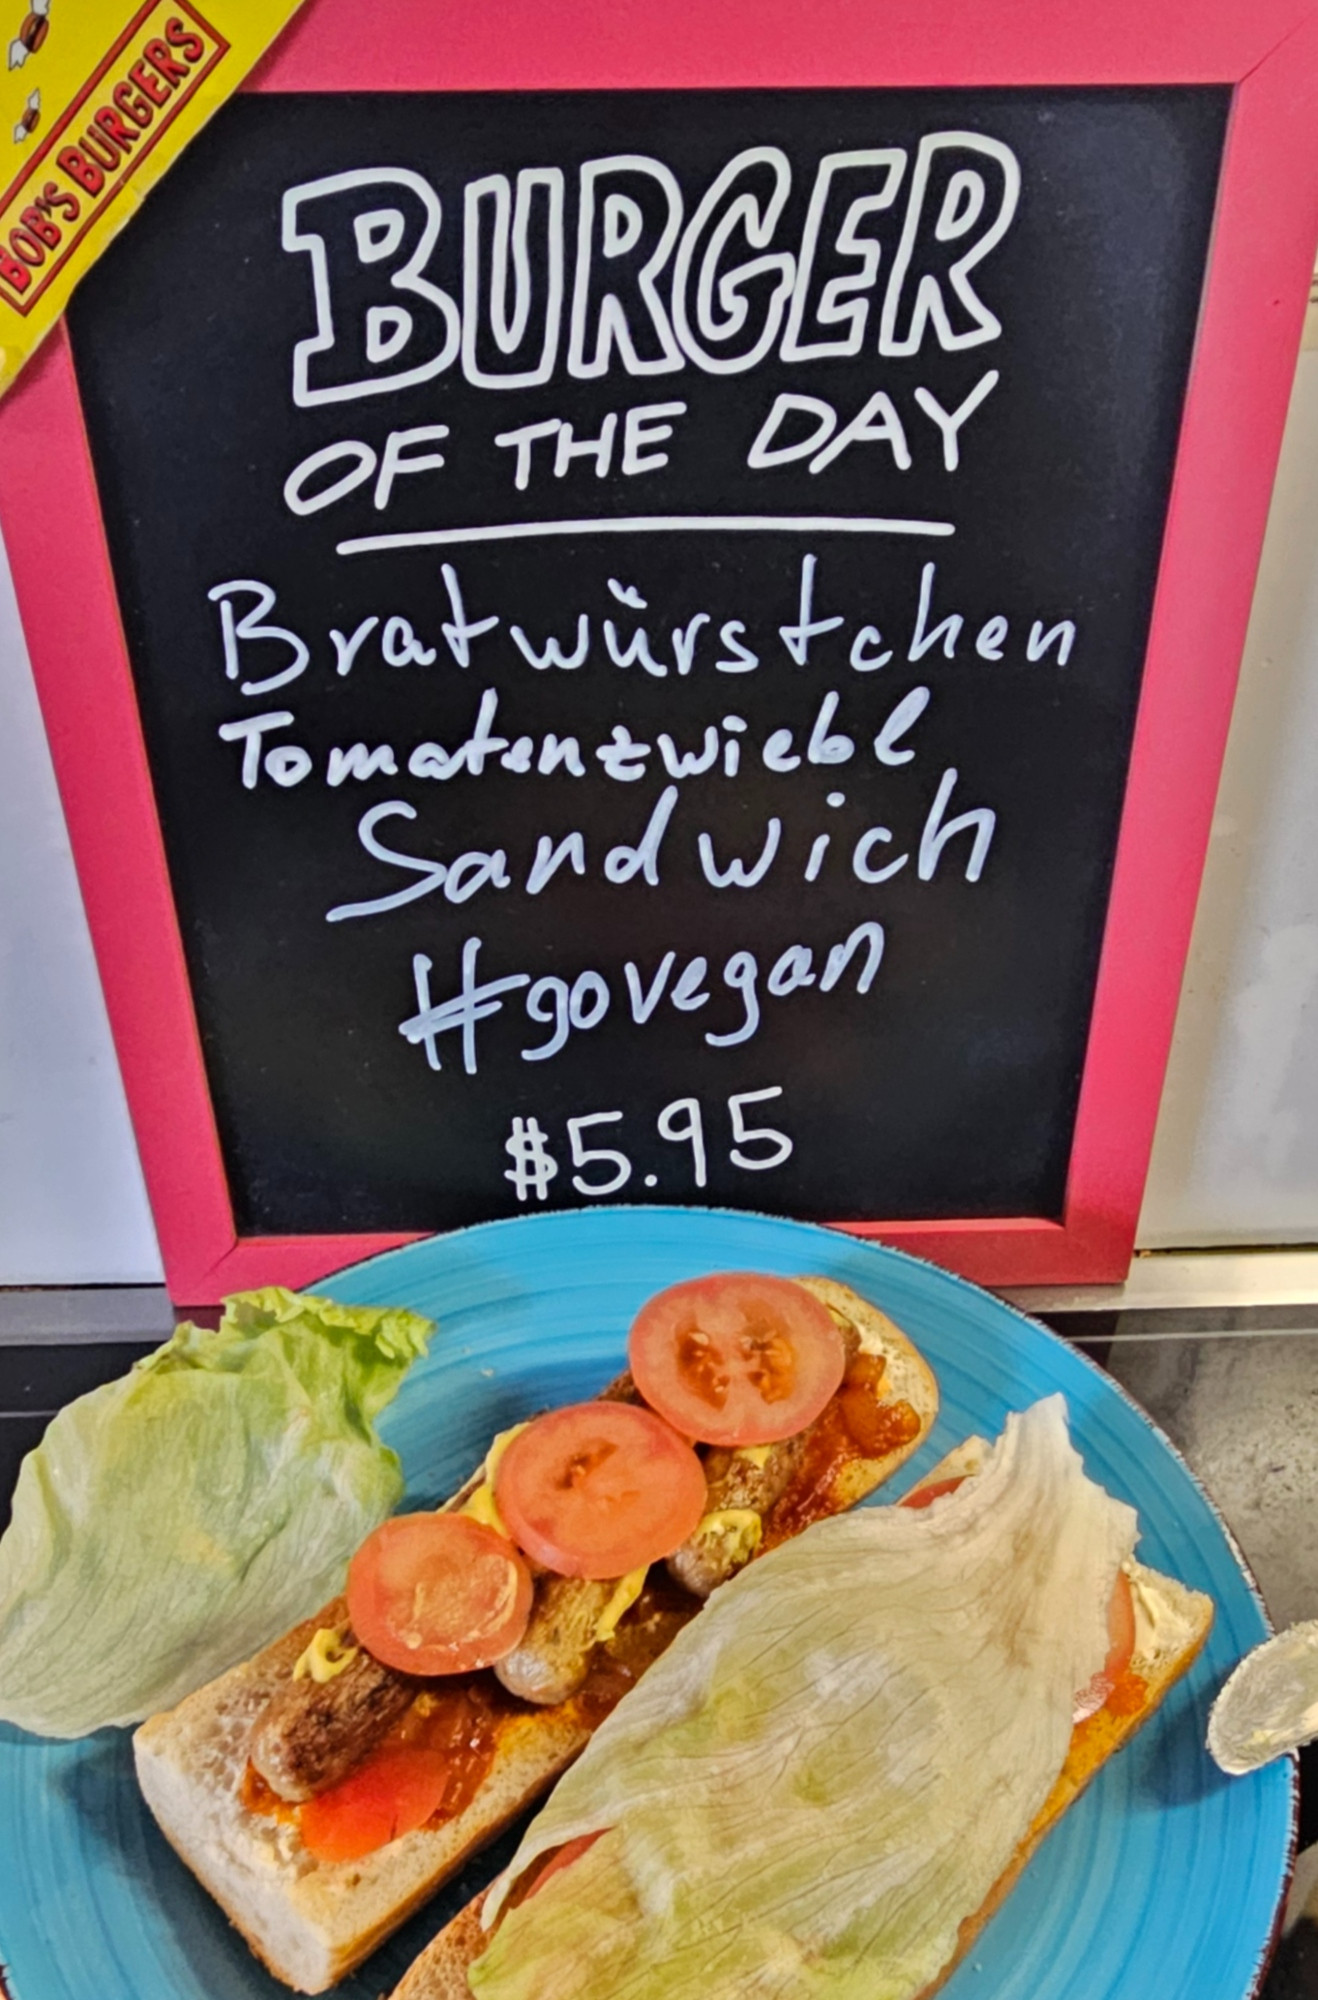 BOB'S BURGERS
BURGER
OF THE DAY
Bratwürstchen
Tomatenzwiebl
Sandwich
#govegan
$5.95